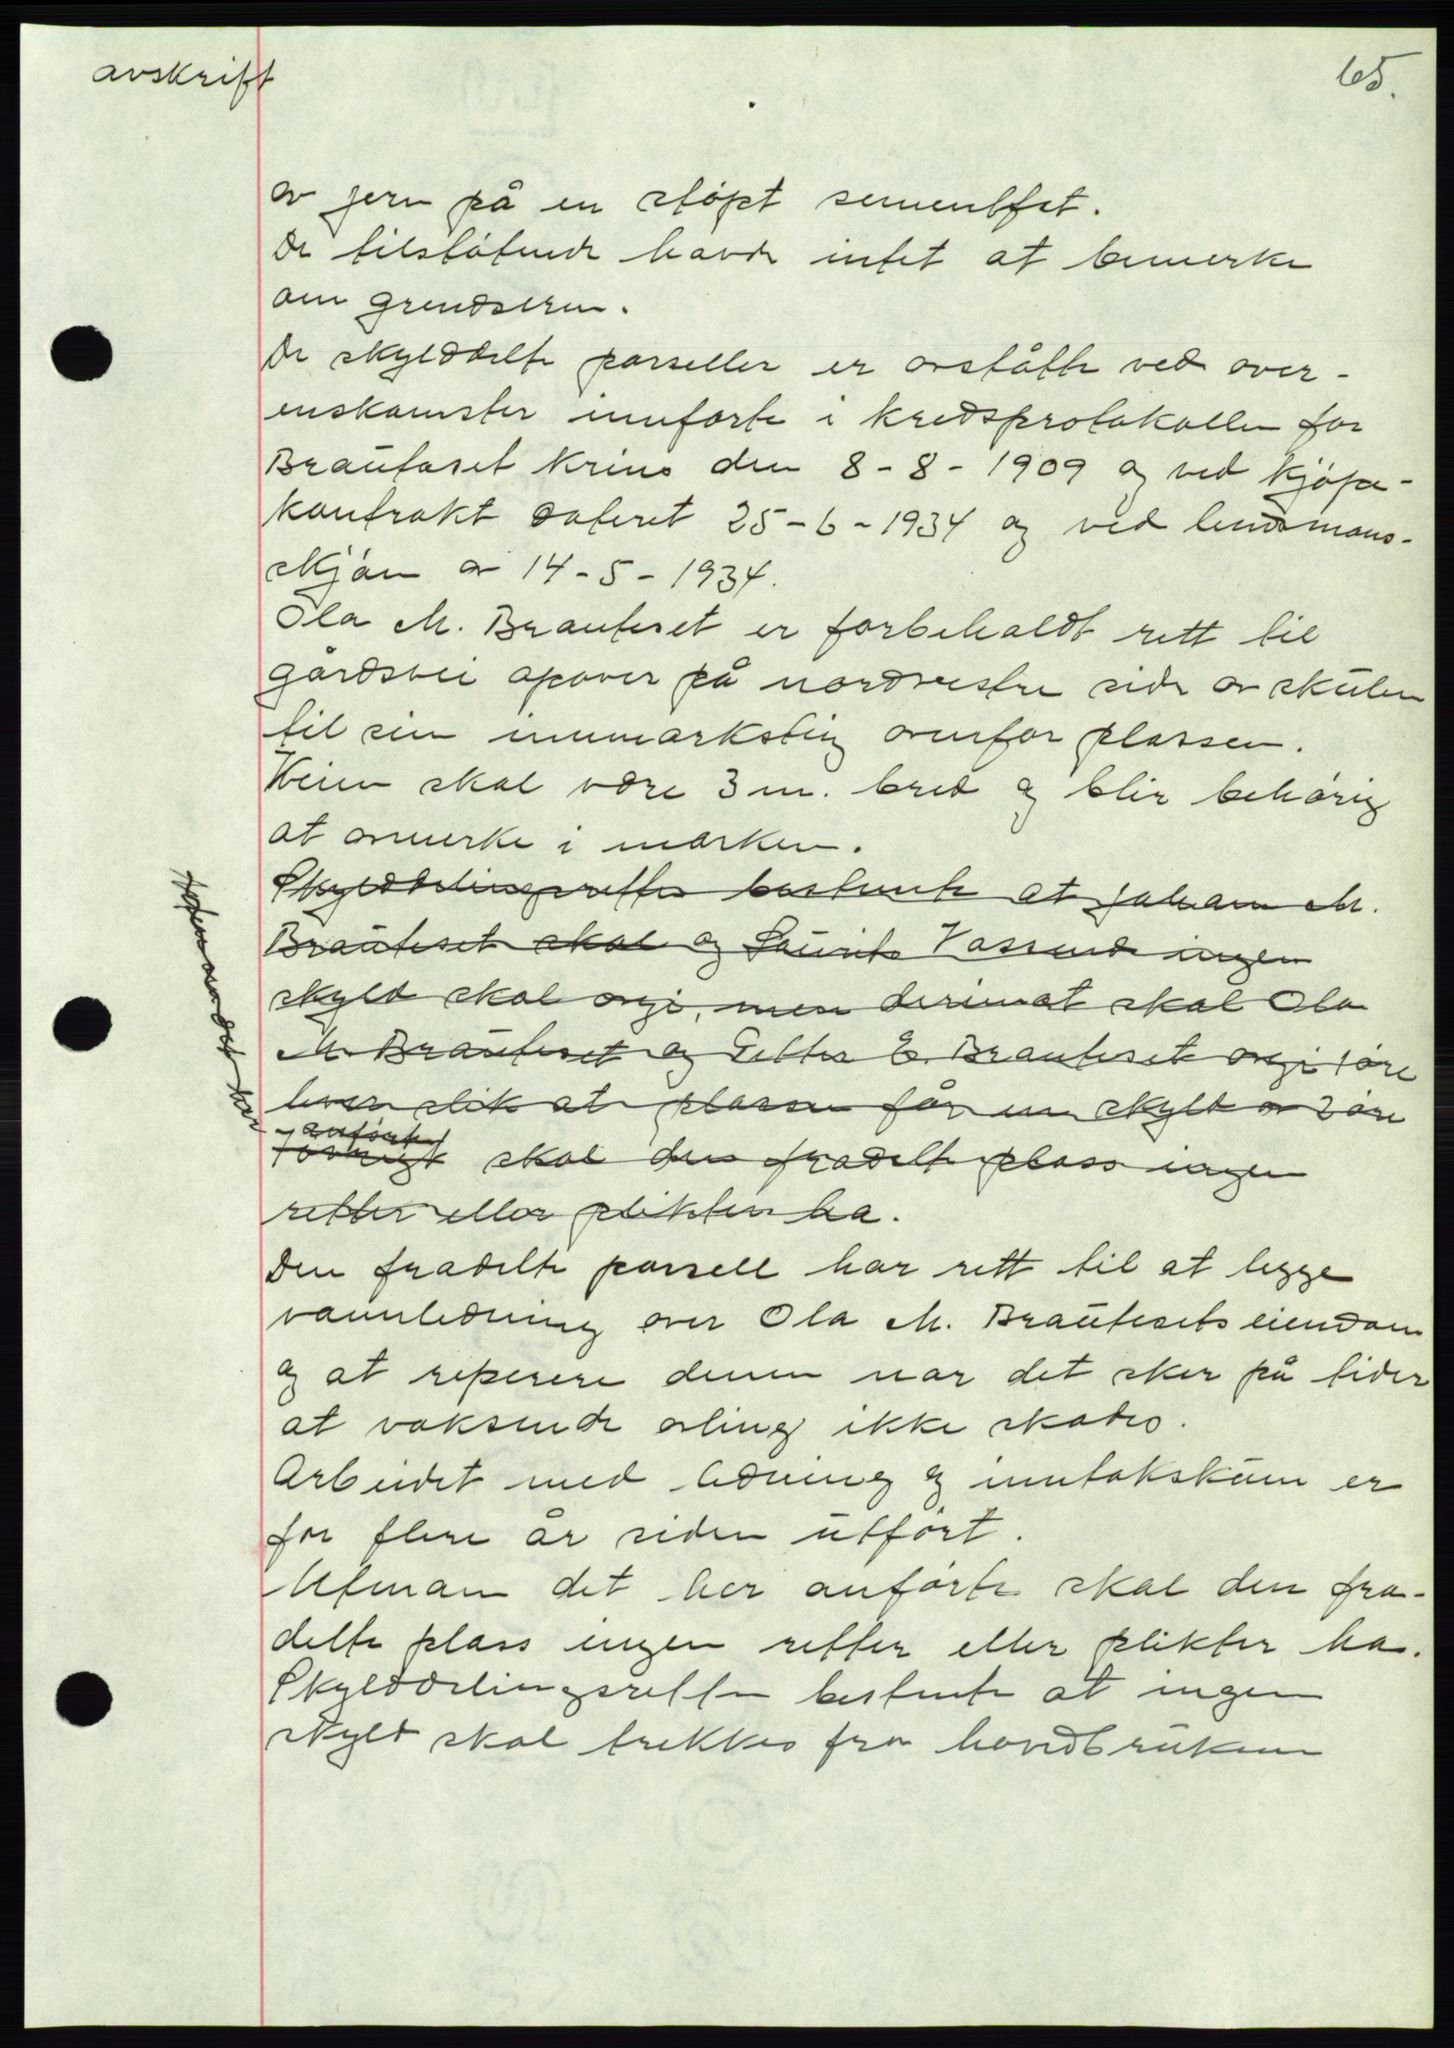 avskrift
65.
av jern på en støpt sementfot.
De tilstøtende havde intet at bemerke
om grendserne.
De skylddelte parseller er avståtte ved over-
enskomster innførte i kredsprotokollen for
Brauteset krins den 8-8-1909 og ved kjøpe-
kontrakt dateret 25-6-1934 og ved lensmans-
skjøn av 14-5-1934.
Ola M. Brauteset er forbeholdt rett til
gårdsvei opover på nordvestre side av skulen
til sin innmarksteig ovenfor plassen.
Veien skal være 3 m. bred og blir behørig
at avmerke i marken.
Skylddelingsretten bestemte at Johan M.
Brauteset skal og Laurits Vassende ingen
skyld skal avgi, men derimot skal Ola
M. Brauteset og Petter E. Brauteset avgi 1 øre
hver slik at plassen får en skyld av 2 øre
Utenom det her
anførte
forøvrigt skal den fradelte plass ingen
retter eller plikter ha.
Den fradelte parsell har rett til at legge
vannledning over Ola M. Brautesets eiendom
og at reperere denne nar det sker på tider
at voksende avling ikke skades.
Arbeidet med ledning og inntakskum er
for flere år siden utført.
Utenom det her anførte skal den fra-
delte plass ingen retter eller plikter ha.
Skylddelingsretten bestemte at ingen
skyld skal trekkes fra hovedbrukene